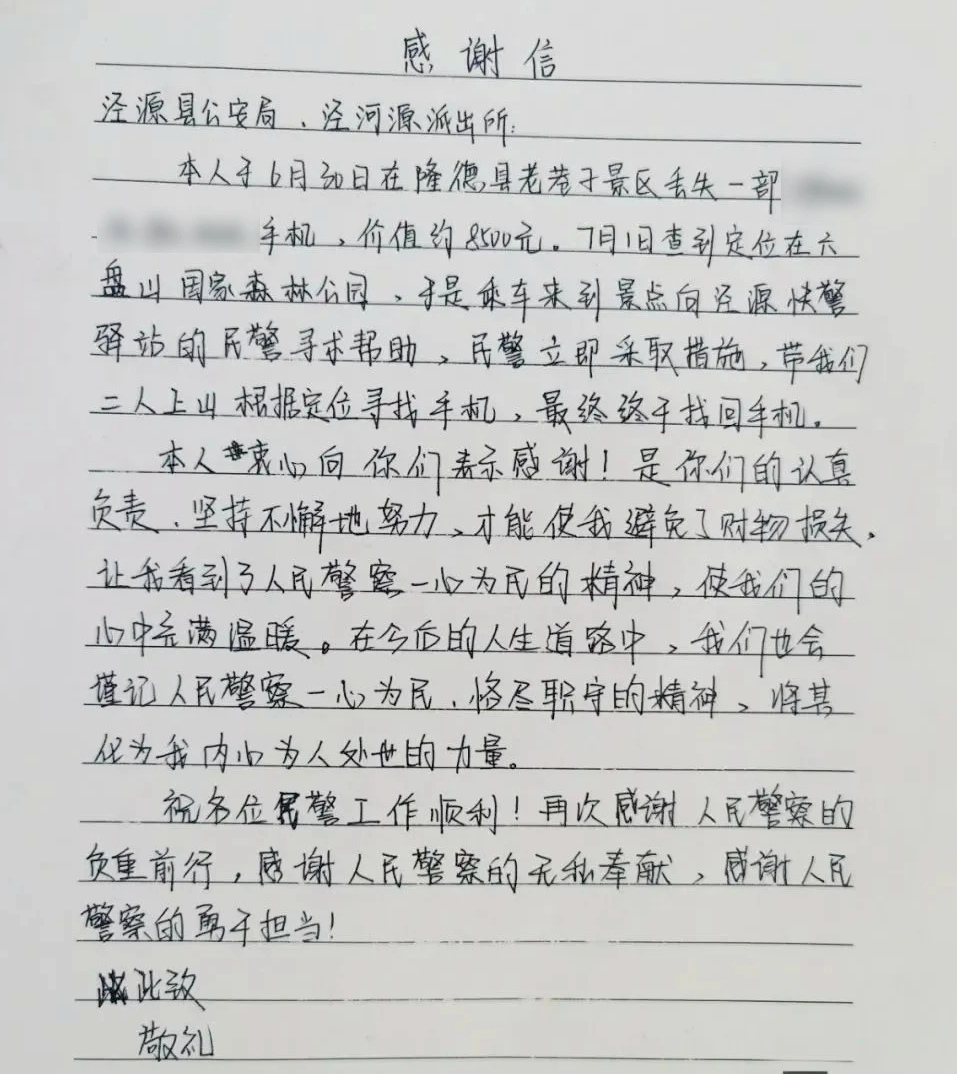 感谢信
泾源县公安局、泾河源派出所:
本人于6月30日在隆德县老巷子景区丢失一部
手机,价值约8500元。7月1日查到定位在六
盘山国家森林公园,于是乘车来到景点向泾源快警
驿站的民警寻求帮助,民警立即采取措施,带我们
二人上山根据定位寻找手机,最终终于找回手机。
本人衷心向你们表示感谢!是你们的认真
负责、坚持不懈地努力,才能使我避免了财物损失,
让我看到了人民警察一心为民的精神,使我们的
心中充满温暖。在今后的人生道路中,我们也会
谨记人民警察一心为民、恪尽职守的精神,将其
化为我内心为人处世的力量。
祝各位民警工作顺利!再次感谢人民警察的
负重前行,感谢人民警察的无私奉献,感谢人民
警察的勇于担当!
此致
敬礼